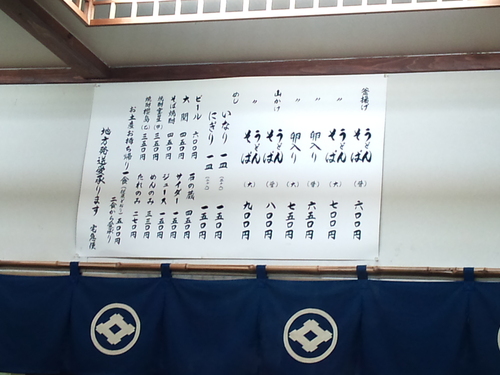 釜揚げ うどん そば (普) 六〇〇円
〃 うどん そば (大) 七〇〇円
〃 卵入り (普) 六五〇円
〃 卵入り (大) 七五〇円
山かけ うどん そば (普) 八〇〇円
〃 うどん そば (大) 九〇〇円
めし
いなり 一皿 一五〇円
にぎり 一皿 一五〇円
ビール 六〇〇円
大関 四五〇円
そば焼酎 四五〇円
三五〇円
三五〇円
四五〇円
サイダー 一五〇円
ジュース 一五〇円
めんのみ 三三〇円
たれのみ 二七〇円
お土産お持ち帰り 一食 五〇〇円
二食から承り
地方発送受承ります